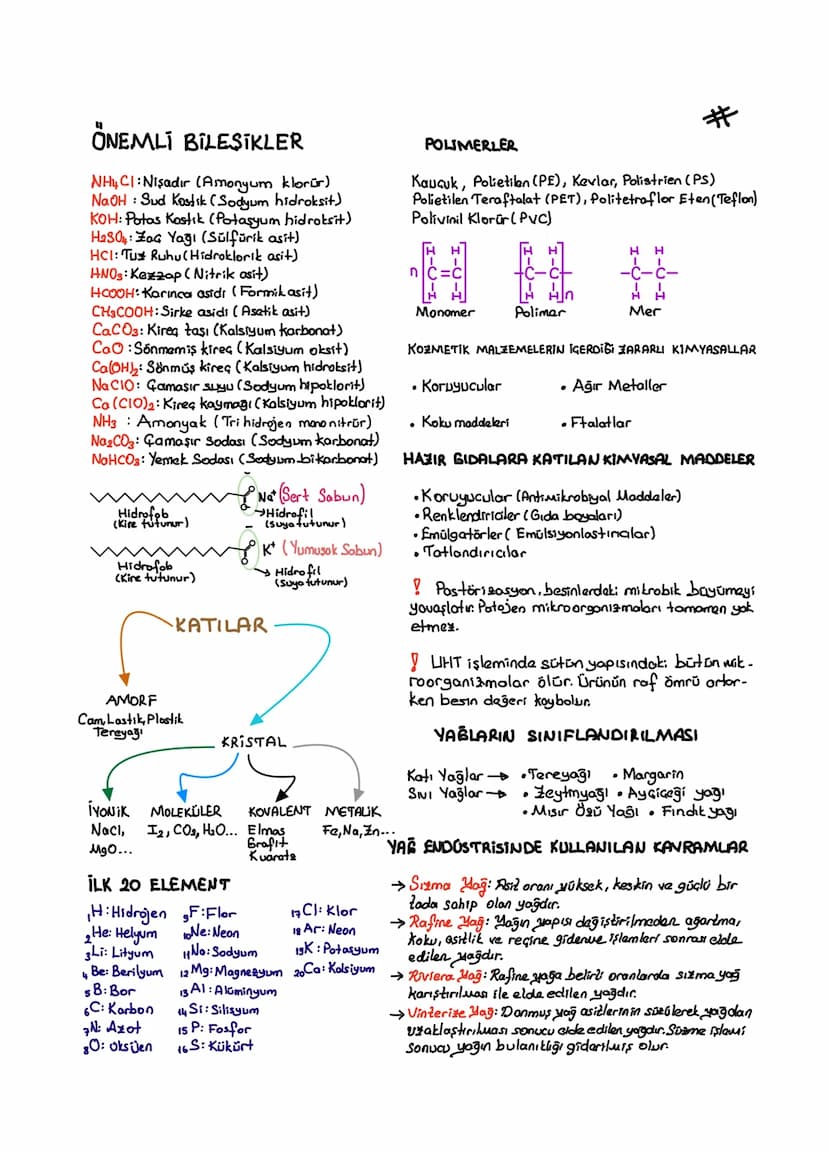 #
ÖNEMLİ BİLEŞİKLER
NH₄Cl: Nişadır (Amonyum klorür)
NaOH : Sud Kostik (Sodyum hidroksit)
KOH: Potas Kostik (Potasyum hidroksit)
H₂SO₄: Zaç Yağı (Sülfürik asit)
HCl: Tuz Ruhu (Hidroklorik asit)
HNO₃: Kezzap (Nitrik asit)
HCOOH: Karınca asidi (Formik asit)
CH₃COOH: Sirke asidi (Asetik asit)
CaCO₃: Kireç taşı (Kalsiyum karbonat)
CaO : Sönmemiş kireç (Kalsiyum oksit)
Ca(OH)₂: Sönmüş kireç (Kalsiyum hidroksit)
NaClO: Çamaşır suyu (Sodyum hipoklorit)
Ca(ClO)₂: Kireç kaymağı (Kalsiyum hipoklorit)
NH₃ : Amonyak (Tri hidrojen mono nitrür)
Na₂CO₃: Çamaşır Sodası (Sodyum karbonat)
NaHCO₃: Yemek Sodası (Sodyum bikarbonat)
Na⁺ (Sert Sabun)
Hidrofob
(Kire tutunur)
Hidrofil
(Suya tutunur)
K⁺ (Yumuşak Sabun)
Hidrofob
(Kire tutunur)
Hidrofil
(Suya tutunur)
KATILAR
AMORF
Cam, Lastik, Plastik
Tereyağı
KRİSTAL
İYONİK
NaCl,
MgO...
MOLEKÜLER
I₂, CO₂, H₂O...
KOVALENT
Elmas
Grafit
Kuartz
METALİK
Fe, Na, Zn...
İLK 20 ELEMENT
₁H: Hidrojen
₂He: Helyum
₃Li: Lityum
₄Be: Berilyum
₅B: Bor
₆C: Karbon
₇N: Azot
₈O: Oksijen
₉F: Flor
₁₀Ne: Neon
₁₁Na: Sodyum
₁₂Mg: Magnezyum
₁₃Al: Alüminyum
₁₄Si: Silisyum
₁₅P: Fosfor
₁₆S: Kükürt
₁₇Cl: Klor
₁₈Ar: Neon
₁₉K: Potasyum
₂₀Ca: Kalsiyum
POLİMERLER
Kauçuk, Polietilen (PE), Kevlar, Polistrien (PS)
Polietilen Teraftalat (PET), Politetraflor Eten (Teflon)
Polivinil Klorür (PVC)
H H
n C=C
H H
Monomer
H H
C-C
H H n
Polimer
H H
-C-C-
H H
Mer
KOZMETİK MALZEMELERİN İÇERDİĞİ ZARARLI KİMYASALLAR
• Koruyucular
• Ağır Metaller
• Koku maddeleri
• Ftalatlar
HAZIR GIDALARA KATILAN KİMYASAL MADDELER
• Koruyucular (Antimikrobiyal Maddeler)
• Renklendiriciler (Gıda boyaları)
• Emülgatörler (Emülsiyonlaştırıcılar)
• Tatlandırıcılar
! Pastörizasyon, besinlerdeki mikrobik büyümeyi
yavaşlatır. Patojen mikroorganizmaları tamamen yok
etmez.
! UHT işleminde sütün yapısındaki bütün mik-
roorganizmalar ölür. Ürünün raf ömrü artar-
ken besin değeri kaybolur.
YAĞLARIN SINIFLANDIRILMASI
Katı Yağlar → • Tereyağı • Margarin
Sıvı Yağlar → • Zeytinyağı • Ayçiçeği yağı
• Mısır Özü Yağı • Fındık yağı
YAĞ ENDÜSTRİSİNDE KULLANILAN KAVRAMLAR
→ Sızma Yağ: Asit oranı yüksek, keskin ve güçlü bir
tada sahip olan yağdır.
→ Rafine Yağ: Yağın yapısı değiştirilmeden ağartma,
koku, asitlik ve reçine giderme işlemleri sonrası elde
edilen yağdır.
→ Riviera Yağ: Rafine yağa belirli oranlarda sızma yağ
karıştırılması ile elde edilen yağdır.
→ Vinterize Yağ: Donmuş yağ asitlerinin süzülerek yağdan
uzaklaştırılması sonucu elde edilen yağdır. Süzme işlemi
sonucu yağın bulanıklığı giderilmiş olur.